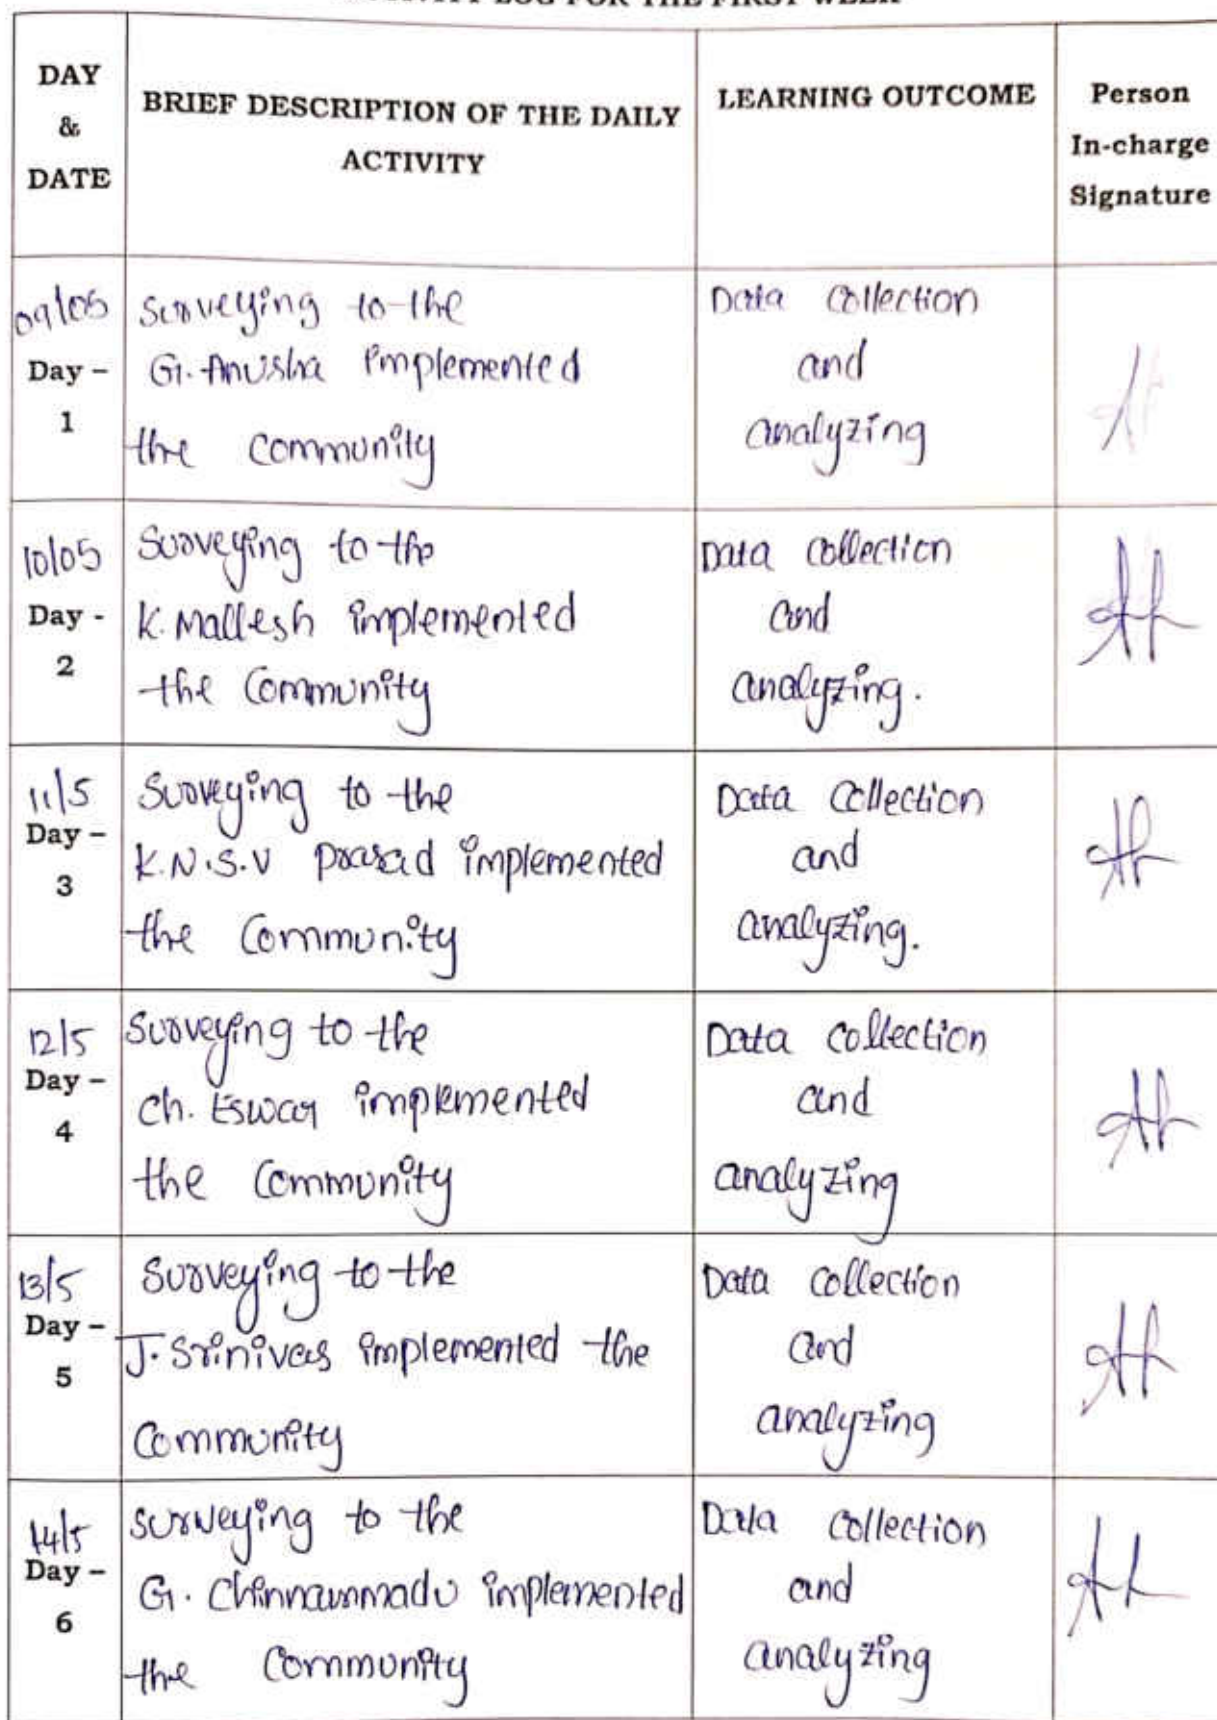 ACTIVITY LOG FOR THE FIRST WEEK
DAY & DATE
BRIEF DESCRIPTION OF THE DAILY ACTIVITY
LEARNING OUTCOME
Person In-charge Signature
09/05
Day – 1
Surveying to the
G. Anusha implemented
the community
Data collection
and
analyzing
10/05
Day - 2
Surveying to the
K. Mallesh implemented
the Community
Data collection
and
analyzing.
11/5
Day – 3
Surveying to the
K.N.S.V prasad implemented
the Community
Data Collection
and
analyzing.
12/5
Day – 4
Surveying to the
Ch. Eswar implemented
the Community
Data collection
and
analyzing
13/5
Day – 5
Surveying to the
J. Srinivas implemented the
Community
Data collection
and
analyzing
14/5
Day – 6
surveying to the
G. Chinnammadu implemented
the Community
Data collection
and
analyzing